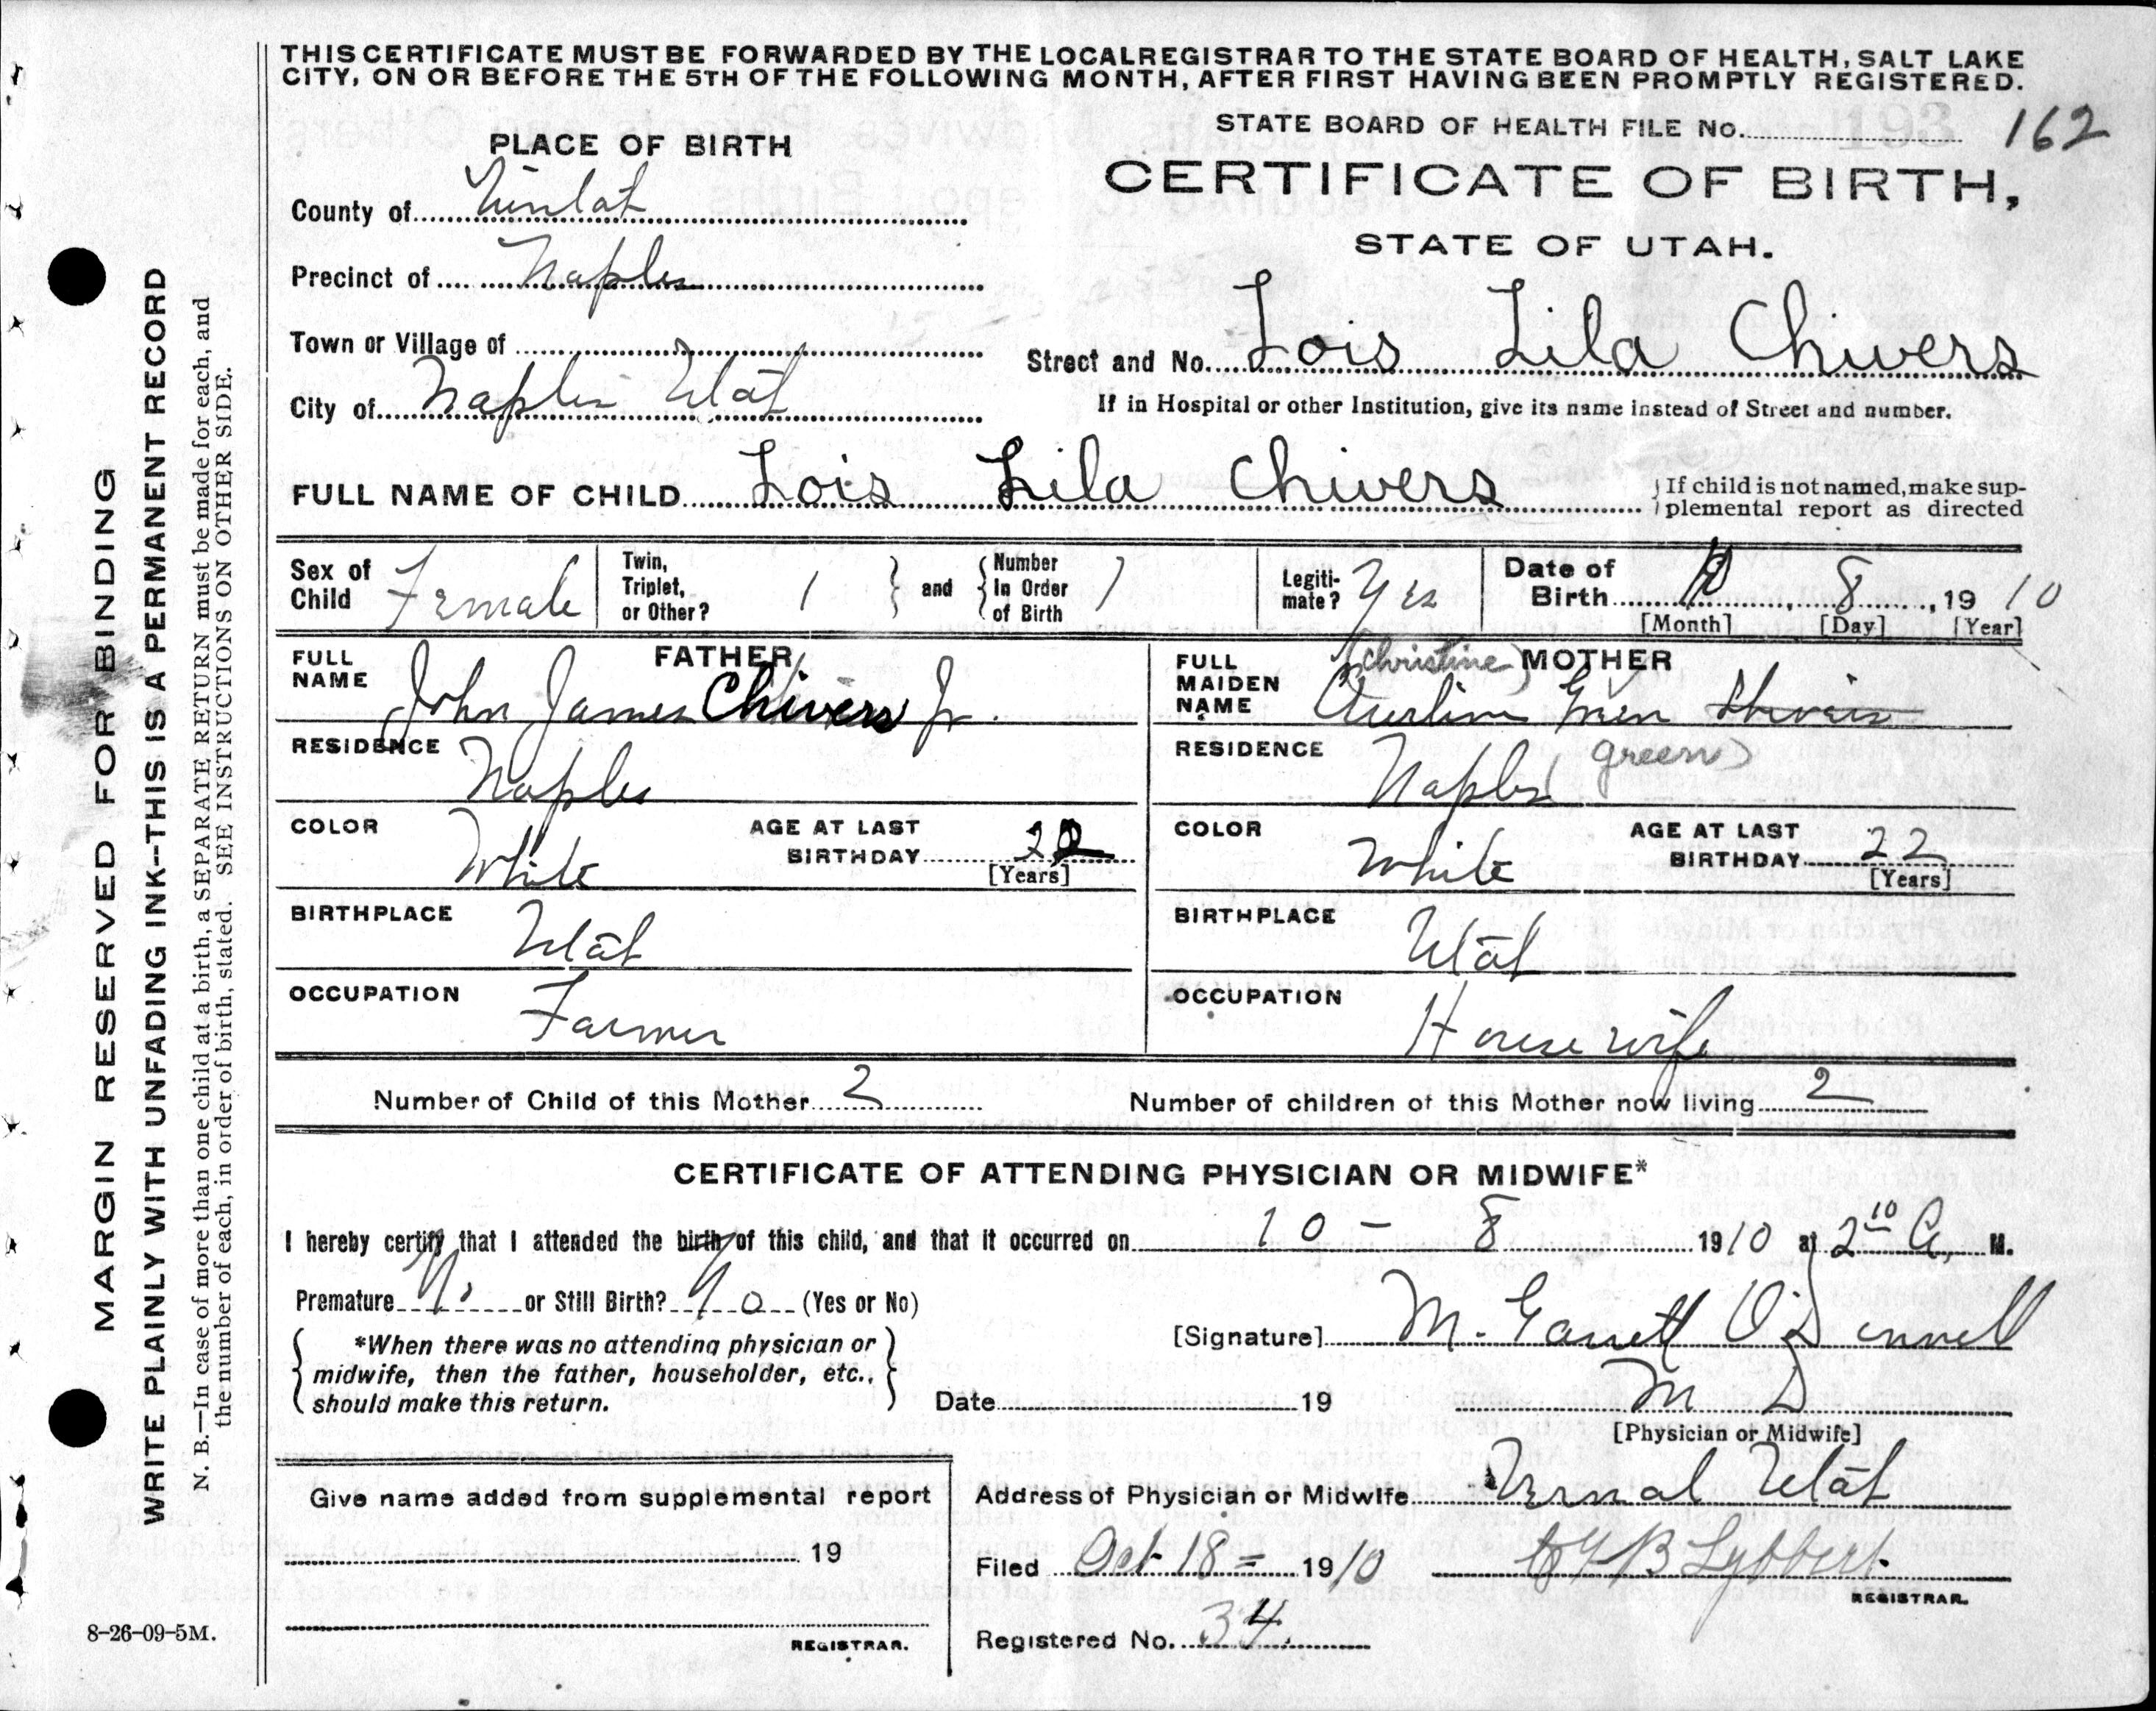 THIS CERTIFICATE MUST BE FORWARDED BY THE LOCAL REGISTRAR TO THE STATE BOARD OF HEALTH, SALT LAKE
CITY, ON OR BEFORE THE 5TH OF THE FOLLOWING MONTH, AFTER FIRST HAVING BEEN PROMPTLY REGISTERED.
STATE BOARD OF HEALTH FILE No. 193 162
CERTIFICATE OF BIRTH,
STATE OF UTAH.
PLACE OF BIRTH
County of
Precinct of Naples
Town or Village of
City of Naples Utah
Street and No. Lois Lila Chivers
If in Hospital or other Institution, give its name instead of Street and number.
FULL NAME OF CHILD Lois Lila Chivers
If child is not named, make sup-
plemental report as directed
Sex of Child Female
Twin, Triplet, or Other? 1
and
Number In Order of Birth 1
Legiti-mate? Yes
Date of Birth 10, 8, 1910
[Month] [Day] [Year]
FATHER
FULL NAME John James Chivers Jr.
RESIDENCE Naples
COLOR White
AGE AT LAST BIRTHDAY 22
[Years]
BIRTHPLACE Utah
OCCUPATION Farmer
MOTHER
(Christine)
FULL MAIDEN NAME Green
(green)
RESIDENCE Naples
COLOR White
AGE AT LAST BIRTHDAY 22
[Years]
BIRTHPLACE Utah
OCCUPATION Housewife
Number of Child of this Mother 2
Number of children of this Mother now living 2
CERTIFICATE OF ATTENDING PHYSICIAN OR MIDWIFE*
I hereby certify that I attended the birth of this child, and that it occurred on 10 - 8 1910 at 2 10 A. M.
Premature No or Still Birth? No (Yes or No)
*When there was no attending physician or
midwife, then the father, householder, etc.,
should make this return.
[Signature] M. Garrett O'Donnell
Date 19
M D
[Physician or Midwife]
Give name added from supplemental report
19
REGISTRAR.
Address of Physician or Midwife Vernal Utah
Filed Oct 18 = 1910
B Lybbert
REGISTRAR.
Registered No. 34
MARGIN RESERVED FOR BINDING
WRITE PLAINLY WITH UNFADING INK--THIS IS A PERMANENT RECORD
N. B.—In case of more than one child at a birth, a SEPARATE RETURN must be made for each, and
the number of each, in order of birth, stated. SEE INSTRUCTIONS ON OTHER SIDE.
8-26-09-5M.